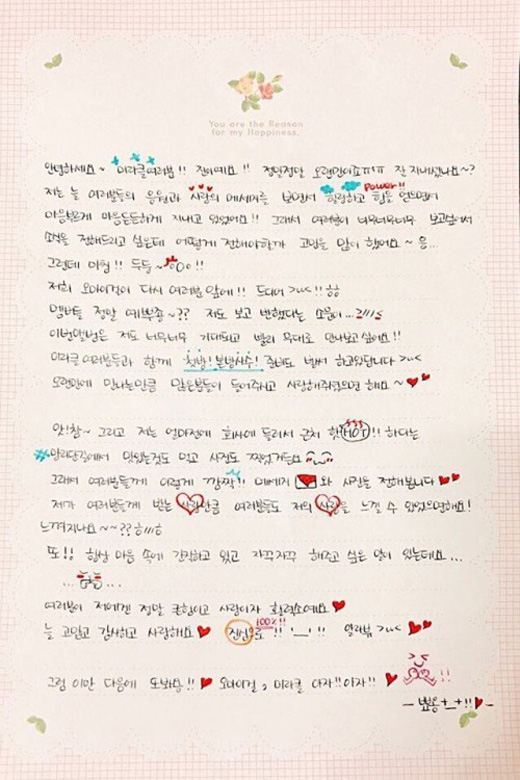 You are the Reason
for my Happiness.
안녕하세요~ 미라클여러분!! 진이예요!! 정말정말 오랜만이죠ㅠㅠ 잘 지내셨나요~?
저는 늘 여러분들의 응원과 사랑의 메세지를 보면서 힐링하고 힘을 얻으면서 Power!!
마음 든든하게 지내고 있었어요!! 그래서 여러분이 너무너무너무 보고싶어서
소식을 전해드리고 싶은데 어떻게 전해야할까 고민을 많이 했어요~ 음...
그런데 마침!! 두둥~
저희 오마이걸이 다시 여러분 앞에!! 드디어 >_<!! ㅎㅎ
멤버들 정말 예쁘죠~?? 저도 보고 반했다는 소문이...
이번앨범은 저도 너무너무 기대되고 빨리 무대로 만나보고싶어요!!
미라클 여러분들과 함께 첫방! 본방사수! 준비도 벌써 하고있답니다 >_<
오랜만에 만나는만큼 많은분들이 들어주시고 사랑해주셨으면 해요~
앗!참~ 그리고 저는 얼마전에 회사에 들러서 근처 핫(HOT)!! 하다는
#망리단길에서 맛있는것도 먹고 사진도 찍었거든요
그래서 여러분들께 이렇게 깜짝!! 메세지 와 사진을 전해봅니다
제가 여러분들께 받는 사랑만큼 여러분들도 저의 사랑을 느낄 수 있었으면해요!
느껴지나요~~?? ㅎ
또!! 항상 마음 속에 간직하고 있고 자꾸자꾸 해주고 싶은 말이 있는데요...
... ...
여러분이 저에겐 정말 큰힘이고 사랑이자 활력소예요
늘 고맙고 감사하고 사랑해요 진심 100%!! '_'!! 알러뷰 >_<
그럼 이만 다음에 또봐요!! 오마이걸 미라클 아자!!아자!! !!
- 뾰옹 +_+!! -